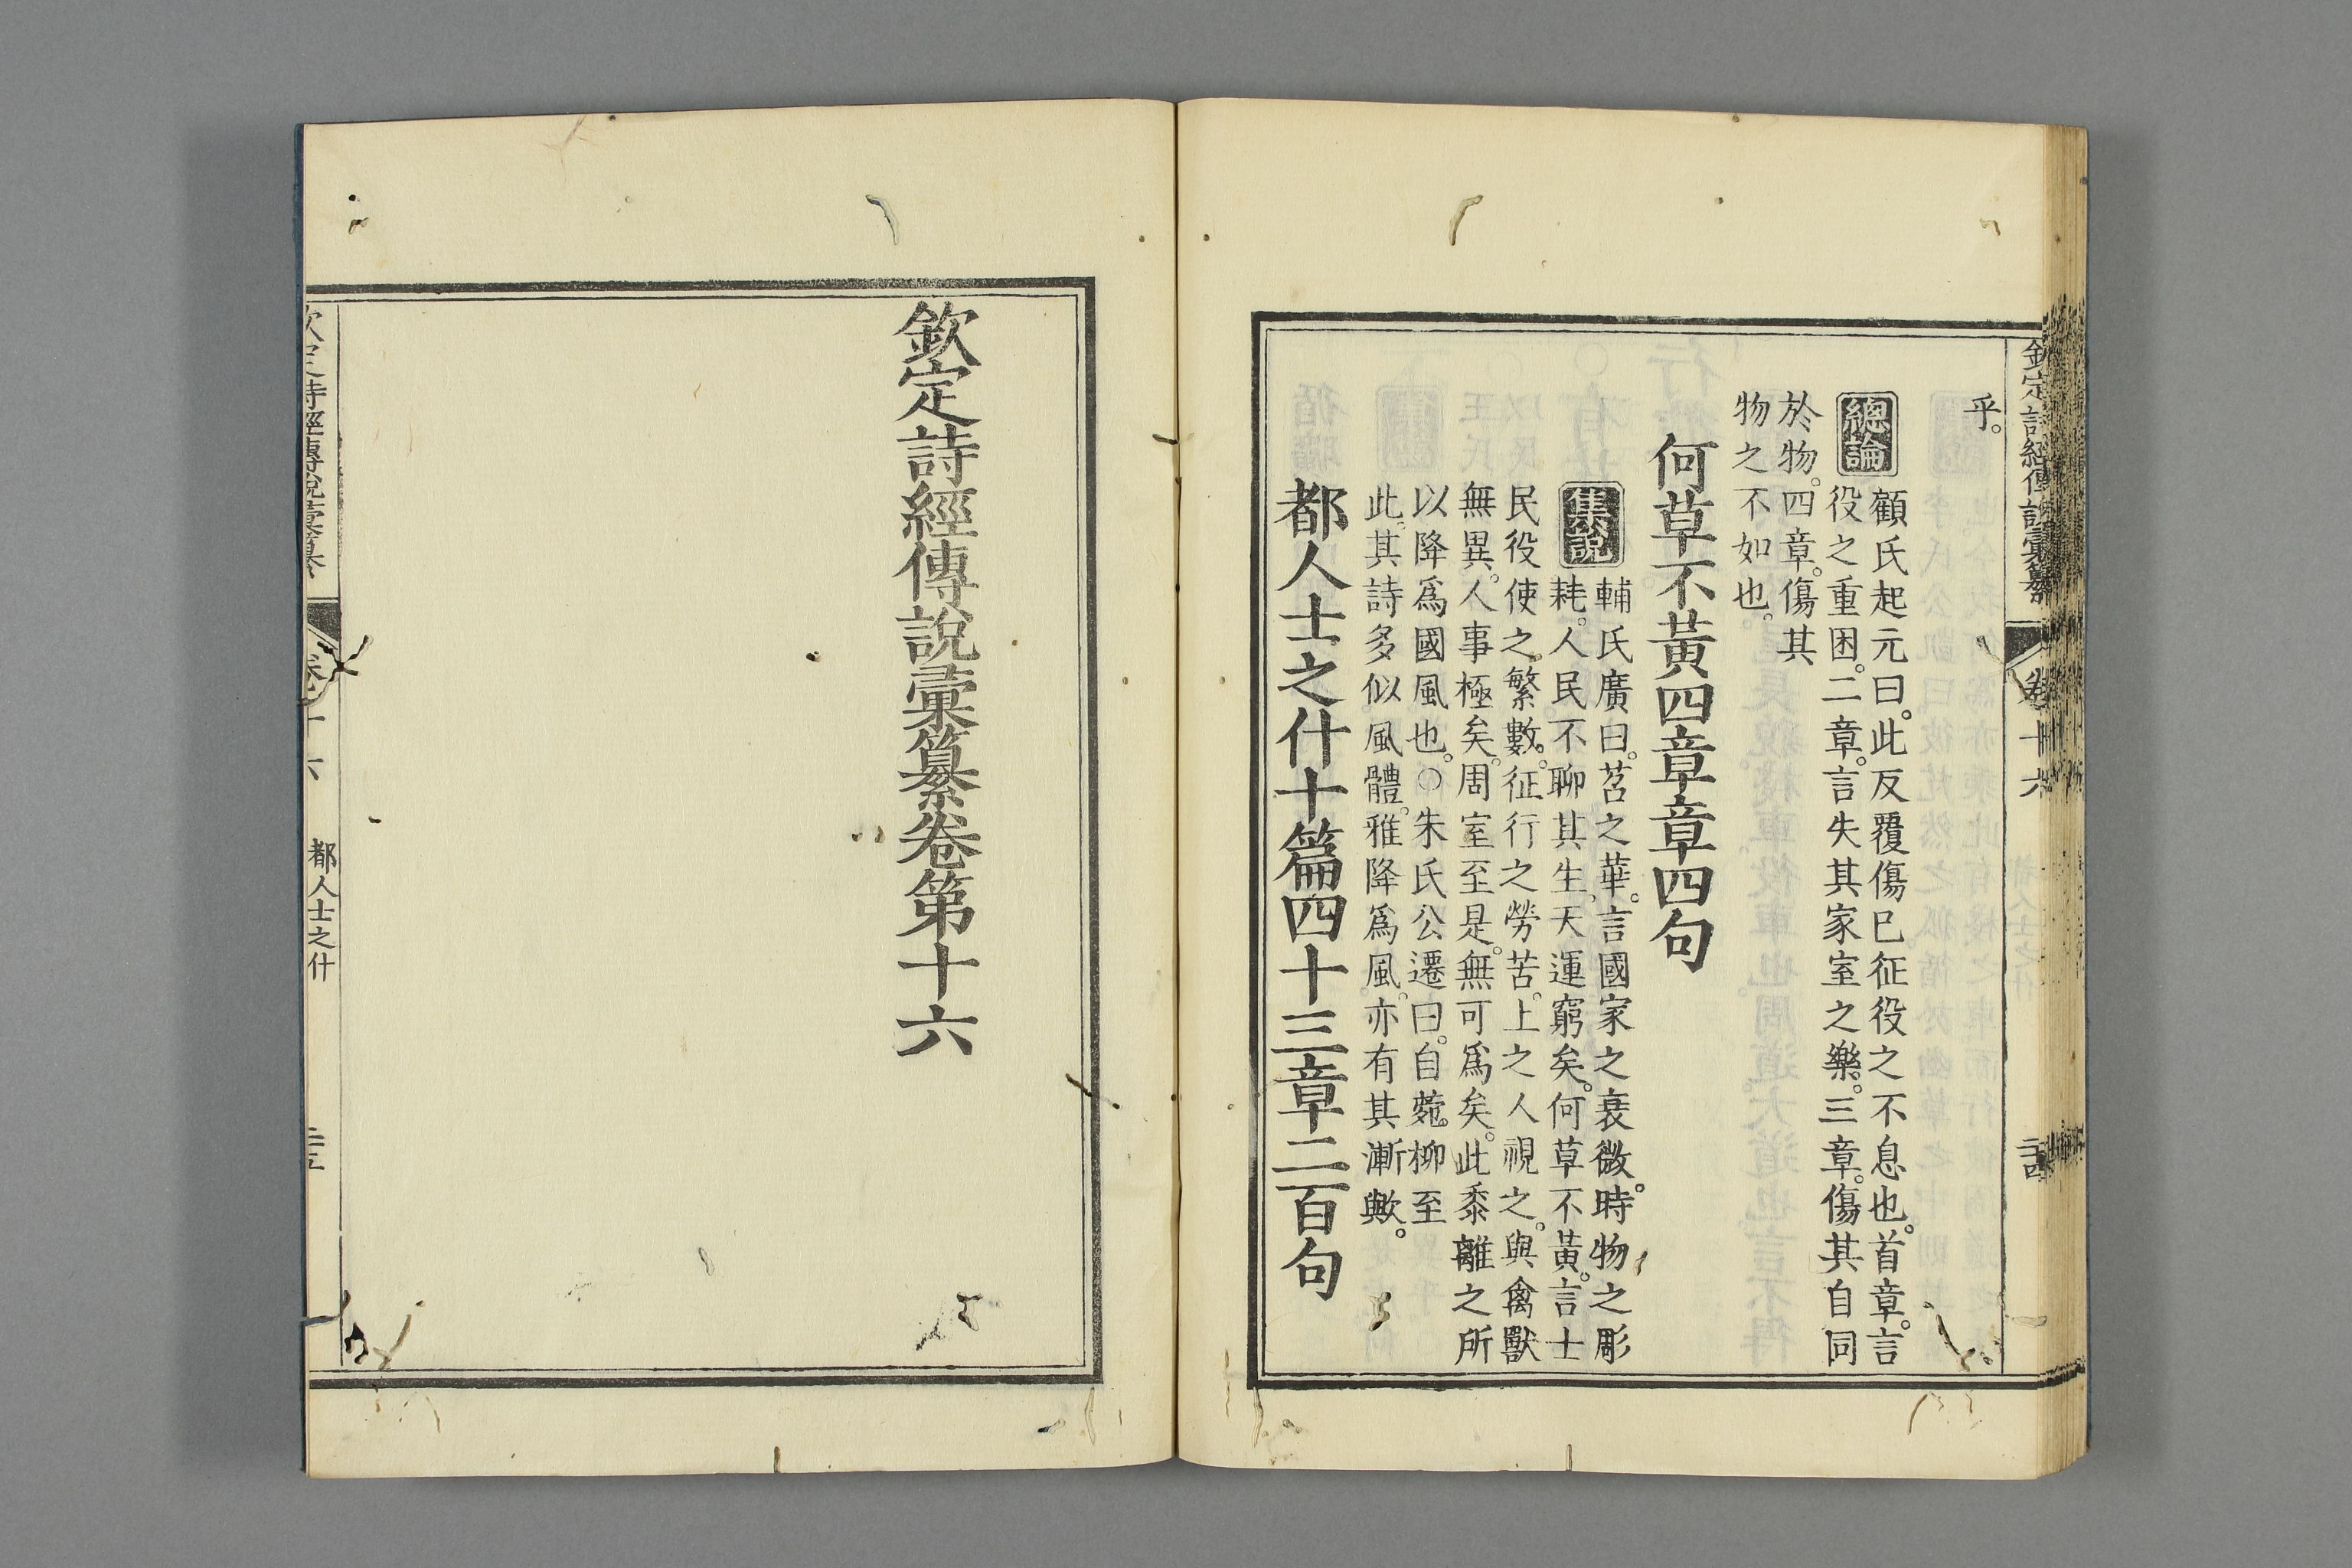 欽定詩經傳說彙纂 卷十六 二十四
乎。
總論
顧氏起元曰。此反覆傷已征役之不息也。首章。言
役之重困。二章。言失其家室之樂。三章。傷其自同
於物。四章。傷其
物之不如也。
何草不黃四章章四句
集說
輔氏廣曰。苕之華。言國家之衰微。時物之彫
耗。人民不聊其生。天運窮矣。何草不黃。言士
民役使之繁數。征行之勞苦。上之人視之。與禽獸
無異。人事極矣。周室至是。無可爲矣。此黍離之所
以降爲國風也。○朱氏公遷曰。自菀柳至
此。其詩多似風體。雅降爲風。亦有其漸歟。
都人士之什十篇四十三章二百句
欽定詩經傳說彙纂卷第十六
欽定詩經傳說彙纂 卷十六 都人士之什 二十五